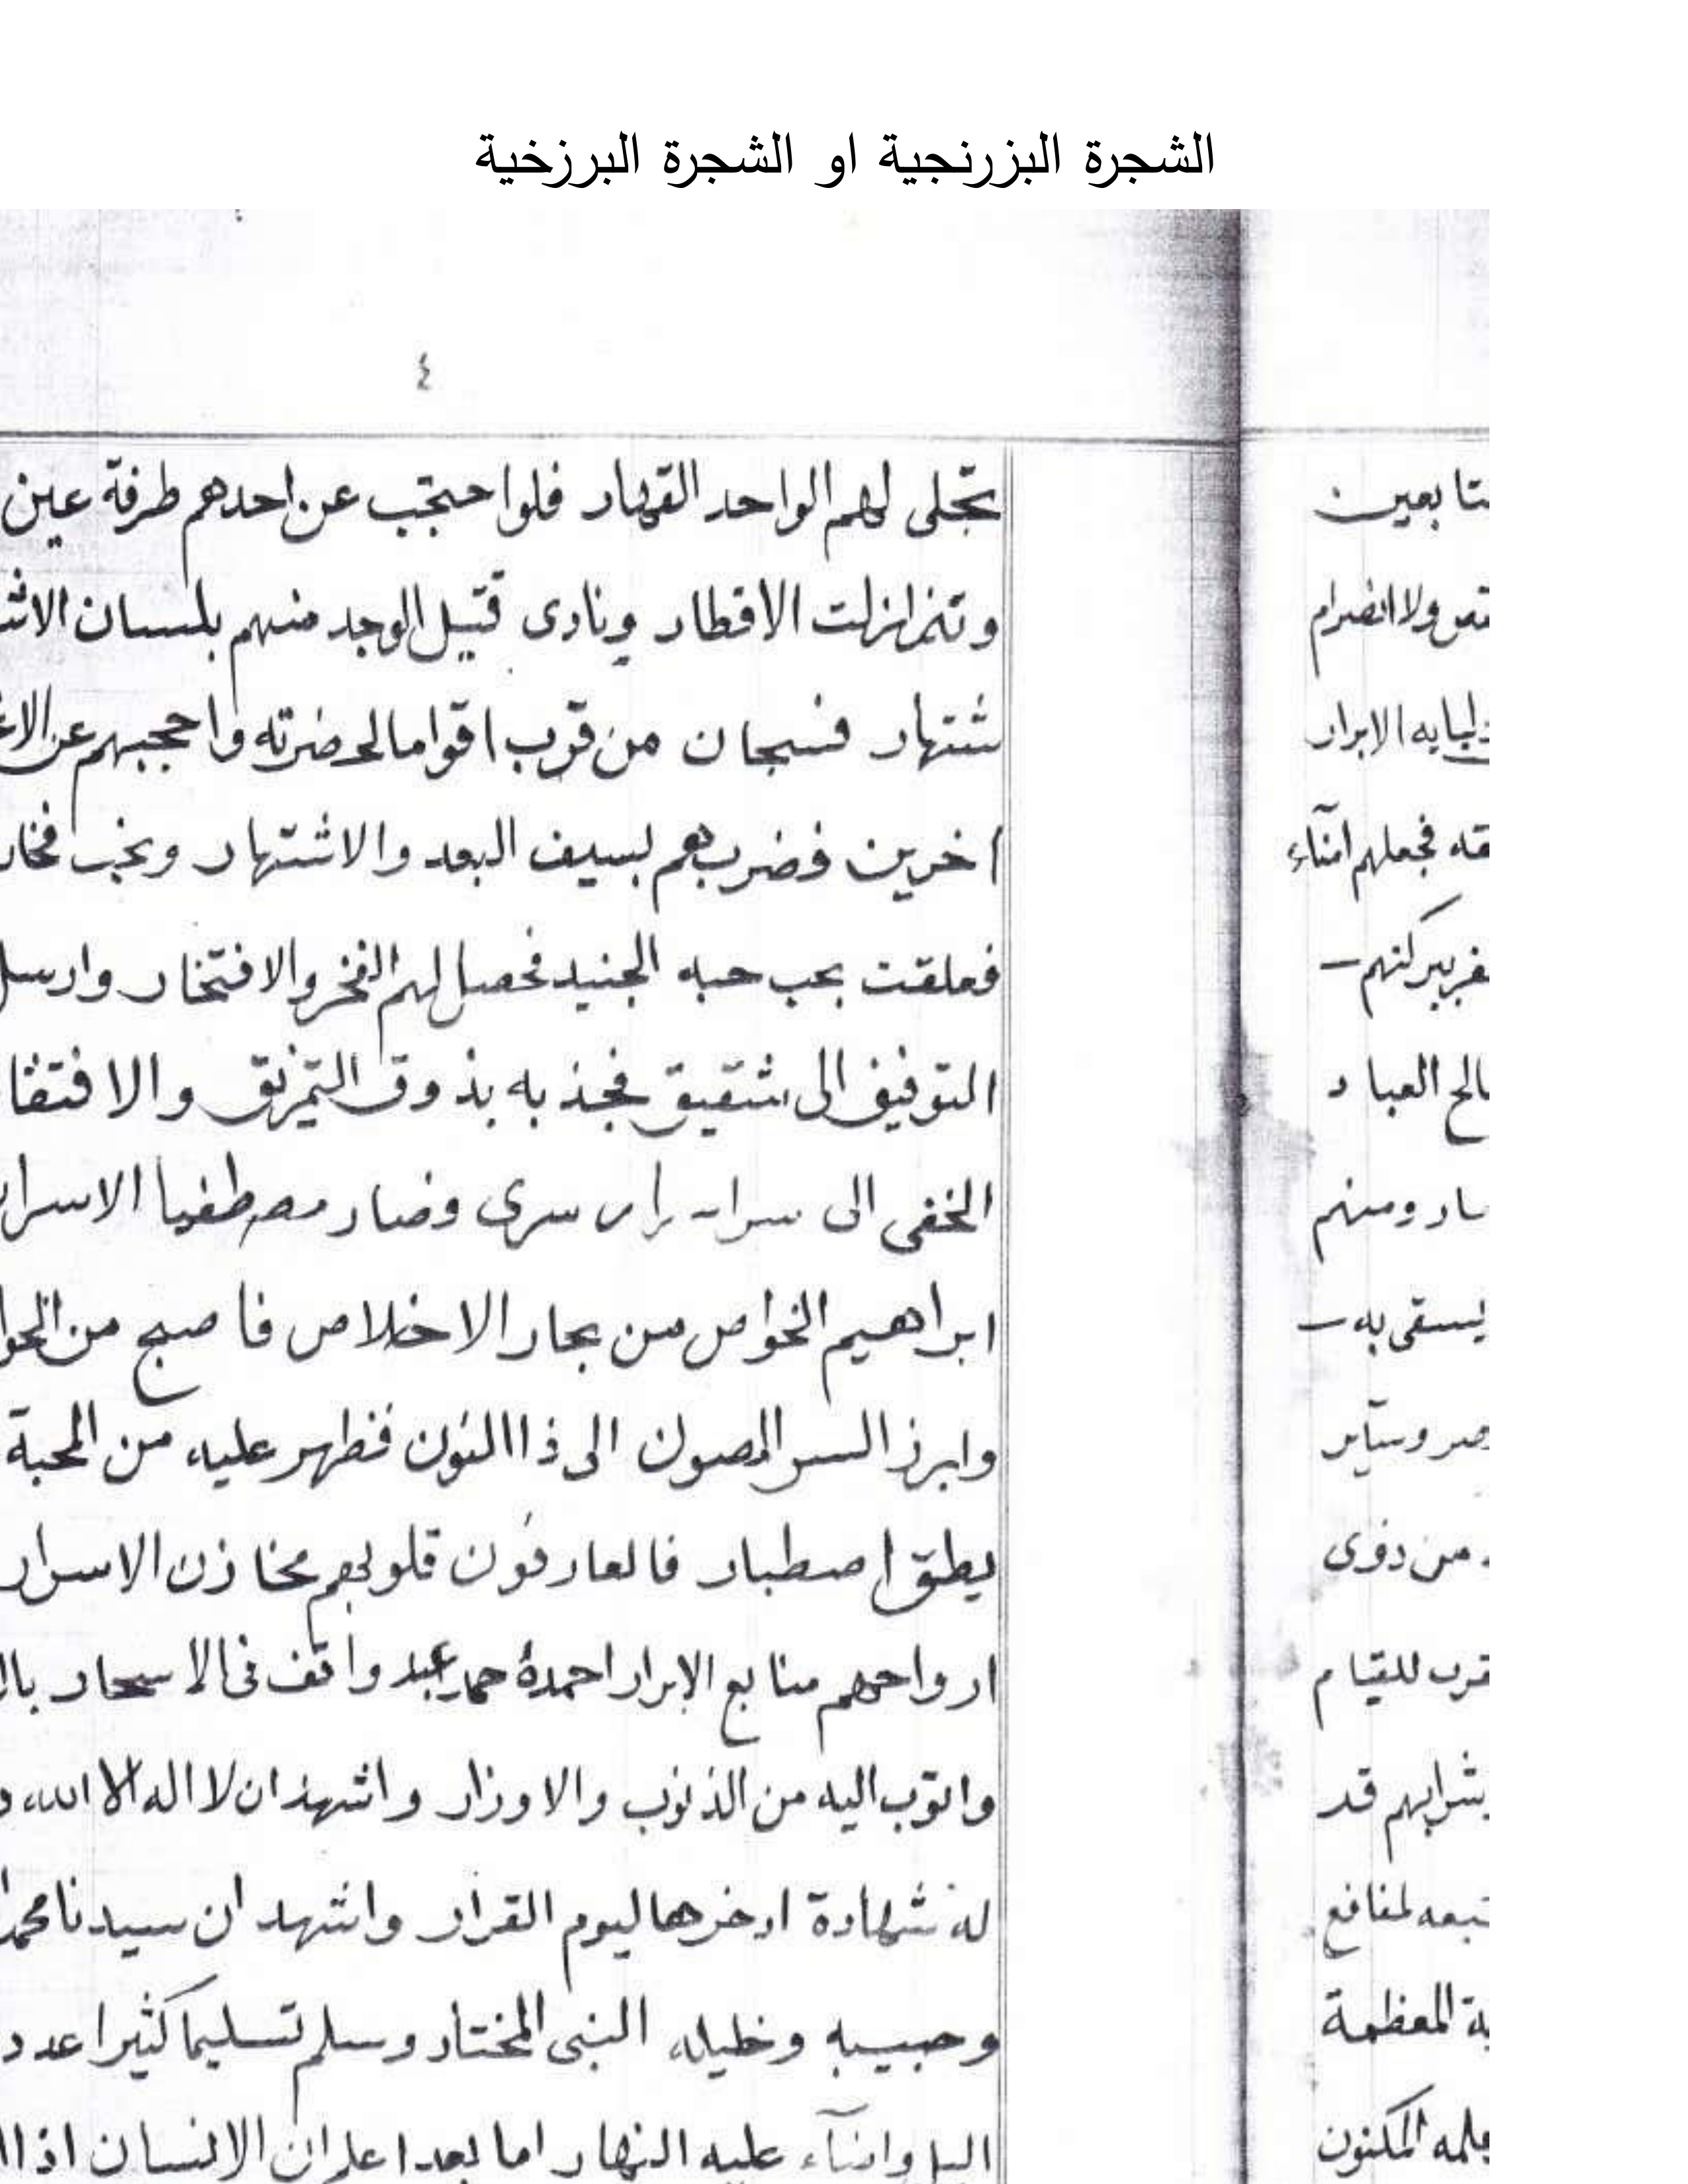 الشجرة البزرنجية او الشجرة البرزخية
٤
تجلى لهم الواحد القهار فلوا حتجب عن احدهم طرفة عين
وتنزلزلت الاقطار ونادى قتيل الوجد منهم بلسان الاش
شتهار فسبحان من قرب اقواما لحضرته واحجبهم عن الاغ
اخرين فضربهم بسيف البعد والاشتهار ونجب فخار
فعلقت بحب حبه الجنيد فحصل لهم الفخر والافتخار وارسل
التوفيق الى شقيق فجذبه بذوق التمزيق والا فتقا
الخفى الى سرى وصار مصطفيا الاسرار
ابراهيم الخواص من بحار الاخلاص فا صبح من الخوا
وابرز السر المصون الى ذا النون فظهر عليه من المحبة
يطق اصطبار فالعارفون قلوبهم مخازن الاسرار
ارواحهم منابع الابرار احمدهٔ حمد عبد واقف فى الا سحار بال
واتوب اليه من الذنوب والاوزار واشهد ان لا اله الا الله و
له شهادة ادخرها ليوم القرار واشهد ان سيدنا محمدا
وحبيبه وخليله النبى المختار وسلم تسليما كثيرا عدد
اليل واضآء عليه النهار اما بعد اعلم ان الانسان اذا ا
متابعين
ولا انصرام
الابرار
فجعلهم امنآء
ببركتهم
صالح العباد
ومنهم
يسقى به
وسآير
من ذوى
قرب للقيام
شرابهم قد
لمنافع
المعظمة
علمه المكنون